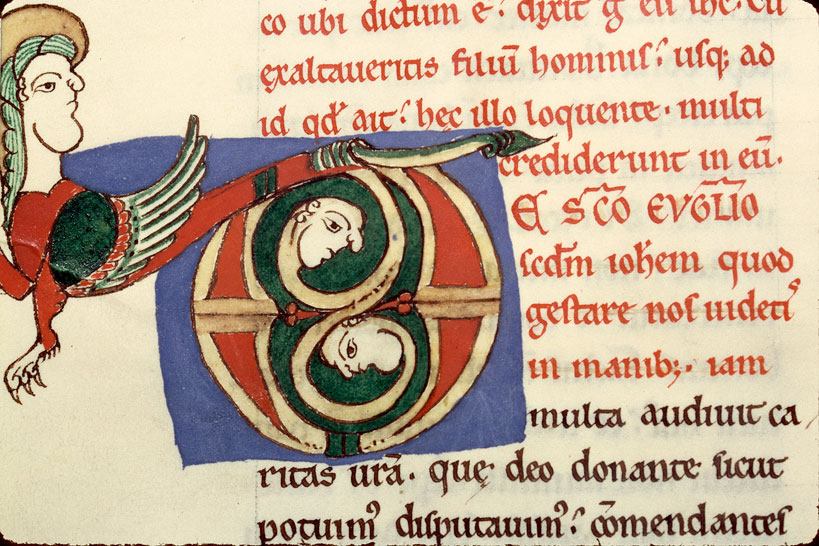 co ubi dictum e᷎. dixit g̊ eū ihc. Cū
exaltaveritis filiū hominis؛ usq; ad
id qd̕ ait؛ hęc illo loquente. multi
crediderunt in eū.
E͞X S͞CO EVG͞LIO
scd̄m ioh̄em quod
gestare nos uidetıꝰ
in manib;. iam
multa audivit ca
ritas ur̄a. quę deo donante sicut
potuimꝰ disputauimꝰ؛ cōmendantes